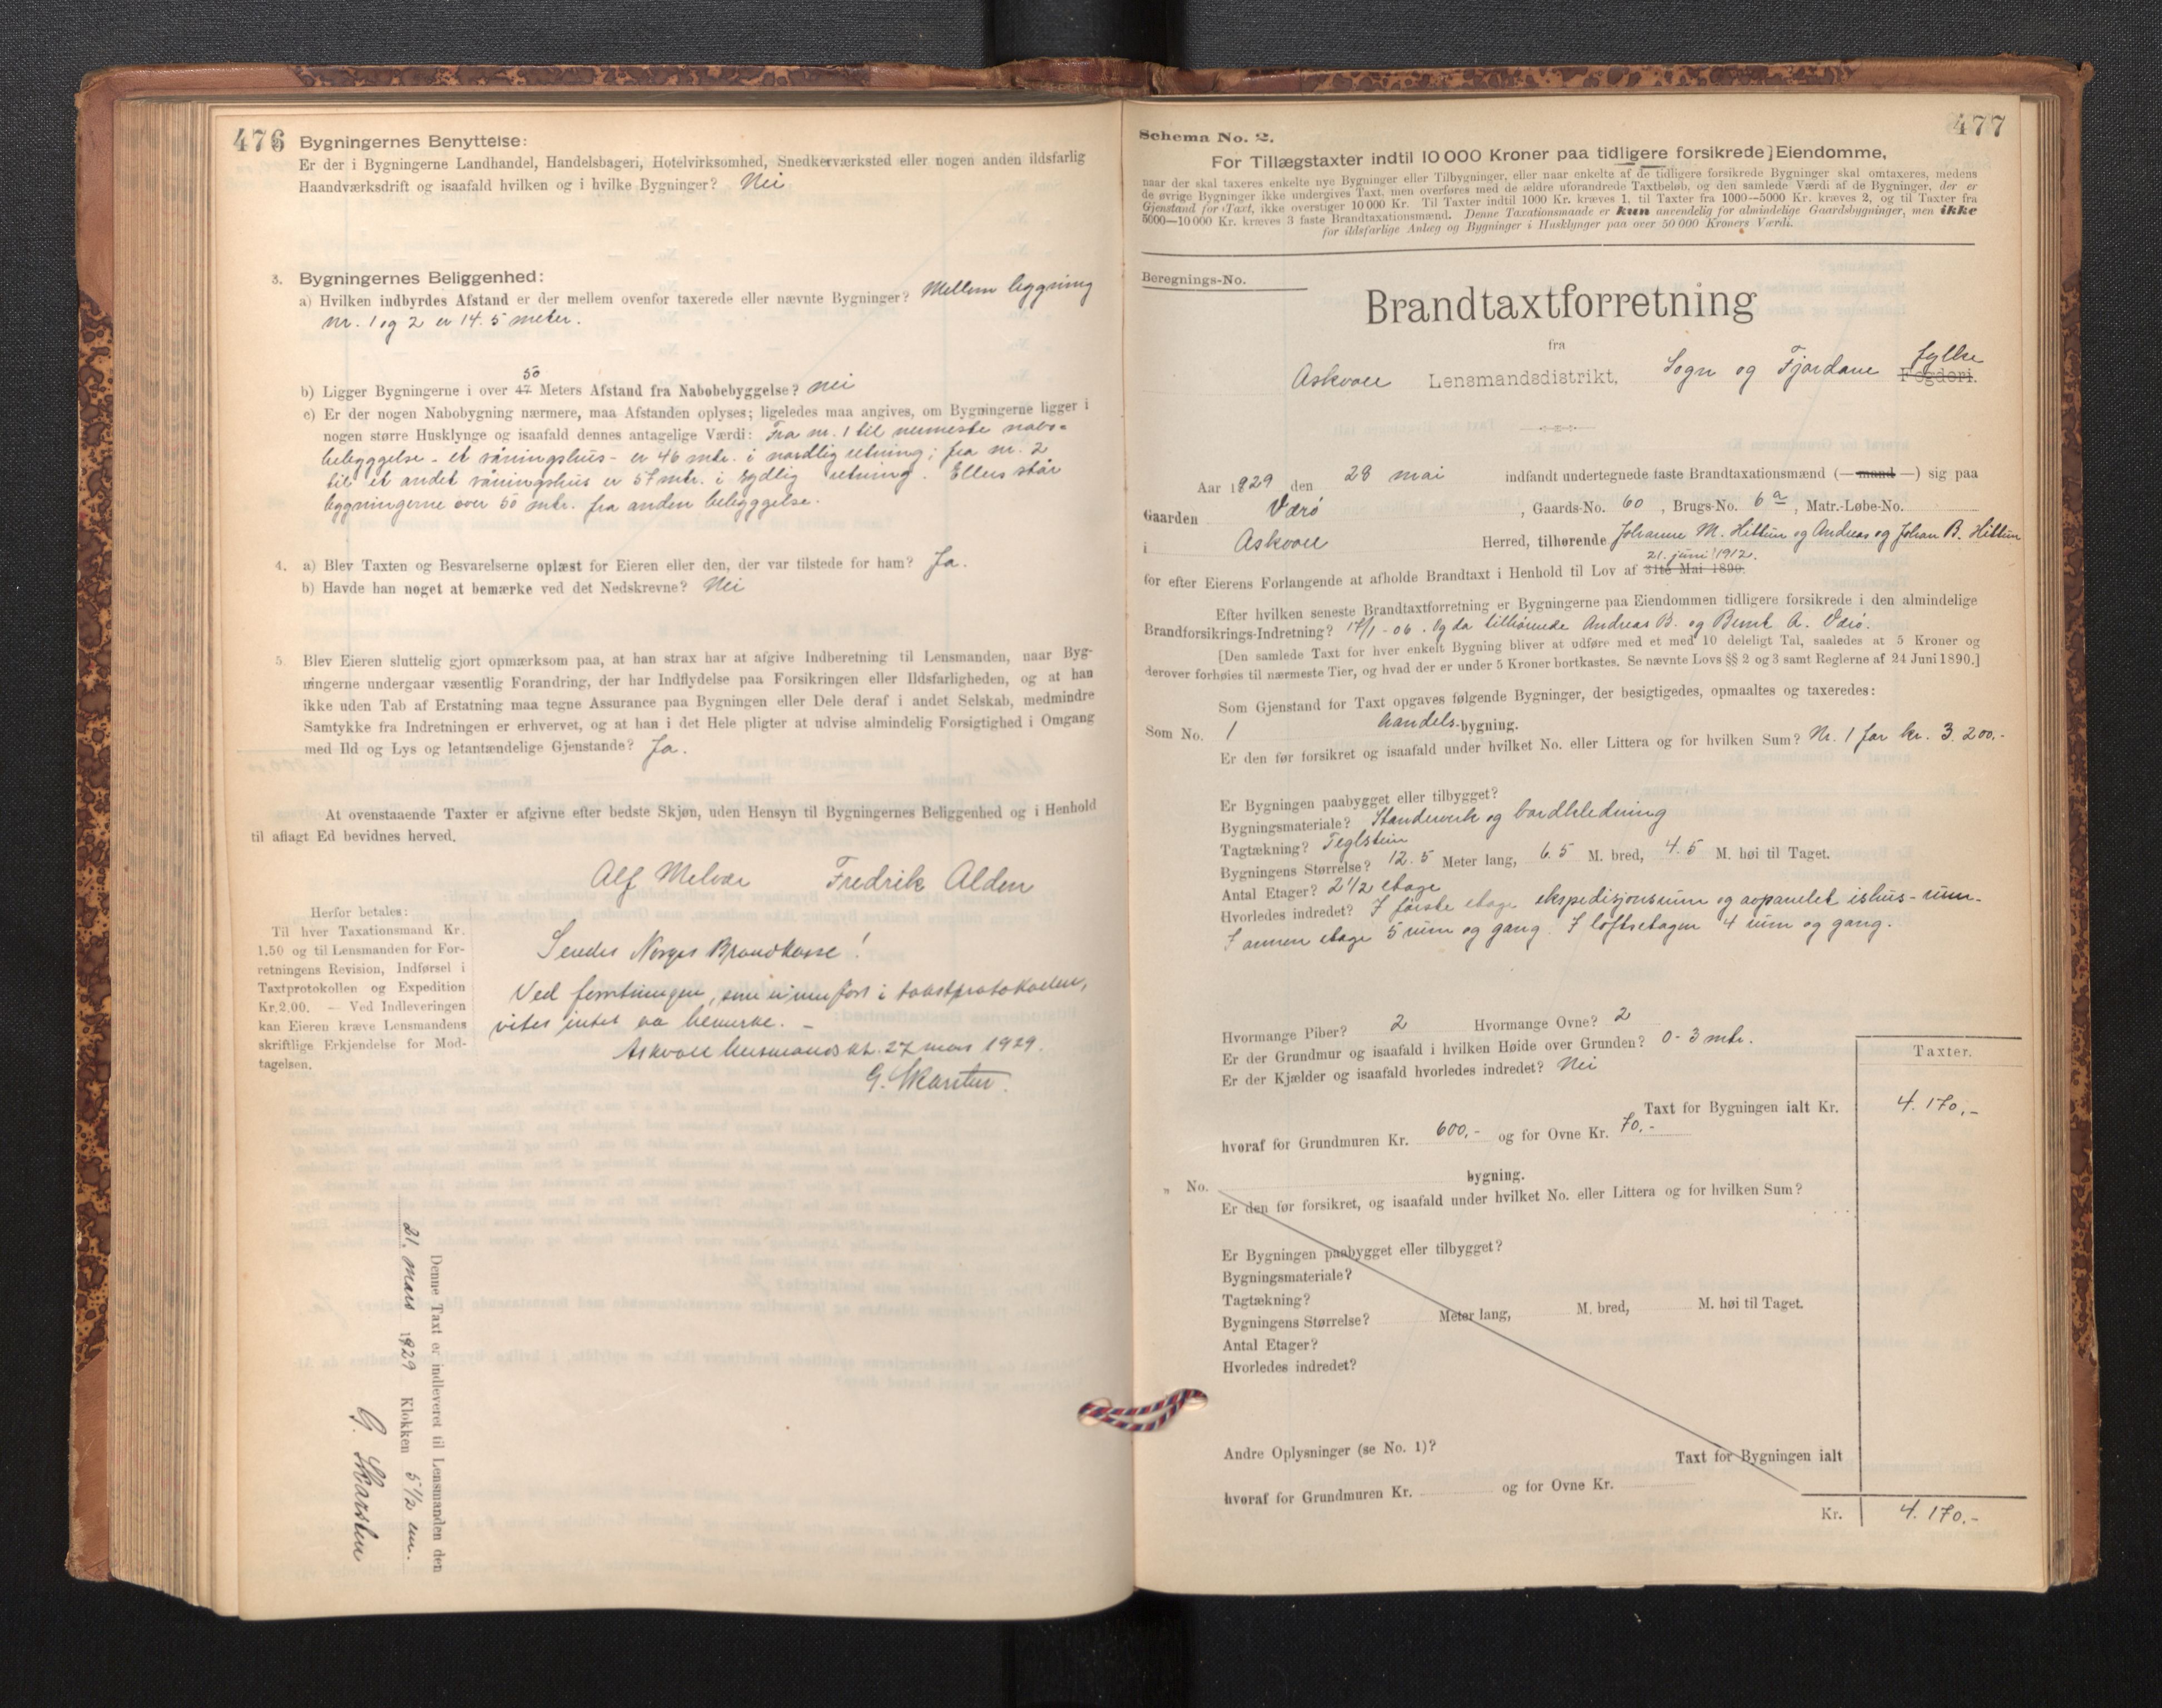 476
Bygningernes Benyttelse:
Er der i Bygningerne Landhandel, Handelsbageri, Hotelvirksomhed, Snedkerværksted eller nogen anden ildsfarlig
Haandværksdrift og isaafald hvilken og i hvilke Bygninger? Nei
3. Bygningernes Beliggenhed:
a) Hvilken indbyrdes Afstand er der mellem ovenfor taxerede eller nævnte Bygninger? Mellem bygning
nr. 1 og 2 er 14.5 meter.
50
b) Ligger Bygningerne i over 47 Meters Afstand fra Nabobebyggelse? nei
c) Er der nogen Nabobygning nærmere, maa Afstanden oplyses; ligeledes maa angives, om Bygningerne ligger i
nogen større Husklynge og isaafald dennes antagelige Værdi: Fra nr. 1 til nermeste nabo-
bebyggelse - et våningshus - er 46 mtr. i nordlig retning; fra nr. 2
til et andet våningshus er 57 mtr. i sydlig retning. Ellers står
bygningerne over 50 mtr. fra anden bebyggelse.
4. a) Blev Taxten og Besvarelserne oplæst for Eieren eller den, der var tilstede for ham? Ja.
b) Havde han noget at bemærke ved det Nedskrevne? Nei
5. Blev Eieren sluttelig gjort opmærksom paa, at han strax har at afgive Indberetning til Lensmanden, naar Byg-
ningerne undergaar væsentlig Forandring, der har Indflydelse paa Forsikringen eller Ildsfarligheden, og at han
ikke uden Tab af Erstatning maa tegne Assurance paa Bygningen eller Dele deraf i andet Selskab, medmindre
Samtykke fra Indretningen er erhvervet, og at han i det Hele pligter at udvise almindelig Forsigtighed i Omgang
med Ild og Lys og letantændelige Gjenstande? Ja.
At ovenstaaende Taxter er afgivne efter bedste Skjøn, uden Hensyn til Bygningernes Beliggenhed og i Henhold
til aflagt Ed bevidnes herved.
Alf Melvær Fredrik Alden
Herfor betales:
Til hver Taxationsmand Kr.
1,50 og til Lensmanden for For-
retningens Revision, Indførsel i
Taxtprotokollen og Expedition
Kr. 2,00. — Ved Indleveringen
kan Eieren kræve Lensmandens
skriftlige Erkjendelse for Mod-
tagelsen.
Sendes Norges Brandkasse!
Ved forretningen, som er innført i takstprotokollen,
vites intet aa bemerke. -
Askvoll lensmandskt. 27 mars 1929.
G. Skarsten.
Denne Taxt er indleveret til Lensmanden den
21. mars 1929 Klokken 5 1/2 em.
G. Skarsten
477
Schema No. 2.
For Tillægstaxter indtil 10 000 Kroner paa tidligere forsikrede] Eiendomme,
naar der skal taxeres enkelte nye Bygninger eller Tilbygninger, eller naar enkelte af de tidligere forsikrede Bygninger skal omtaxeres, medens
de øvrige Bygninger ikke undergives Taxt, men overføres med de ældre uforandrede Taxtbeløb, og den samlede Værdi af de Bygninger, der er
Gjenstand for Taxt, ikke overstiger 10 000 Kr. Til Taxter indtil 1000 Kr. kræves 1, til Taxter fra 1000—5000 Kr. kræves 2, og til Taxter fra
5000—10 000 Kr. kræves 3 faste Brandtaxationsmænd. Denne Taxationsmaade er kun anvendelig for almindelige Gaardsbygninger, men ikke
for ildsfarlige Anlæg og Bygninger i Husklynger paa over 50 000 Kroners Værdi.
Beregnings-No.
Brandtaxtforretning
fra
Askvoll Lensmandsdistrikt, Sogn og Fjordane Fylke Fogderi.
Aar 1929 den 28 mai indfandt undertegnede faste Brandtaxationsmænd (— mand —) sig paa
Gaarden Værø, Gaards-No. 60, Brugs-No. 6 a, Matr.-Løbe-No.
i Askvoll Herred, tilhørende Johanne M. Hittun og Andreas og Johan B. Hittun
21. juni 1912.
for efter Eierens Forlangende at afholde Brandtaxt i Henhold til Lov af 31te Mai 1890.
Efter hvilken seneste Brandtaxtforretning er Bygningerne paa Eiendommen tidligere forsikrede i den almindelige
Brandforsikrings-Indretning? 17/1 - 06. Og da tilhørende Andreas B. og Bernt A. Værø.
[Den samlede Taxt for hver enkelt Bygning bliver at udføre med et med 10 deleligt Tal, saaledes at 5 Kroner og
derover forhøies til nærmeste Tier, og hvad der er under 5 Kroner bortkastes. Se nævnte Lovs §§ 2 og 3 samt Reglerne af 24 Juni 1890.]
Som Gjenstand for Taxt opgaves følgende Bygninger, der besigtigedes, opmaaltes og taxeredes:
Som No. 1 handels-bygning.
Er den før forsikret og isaafald under hvilket No. eller Littera og for hvilken Sum? Nr. 1 for kr. 3.200,-
Er Bygningen paabygget eller tilbygget?
Bygningsmateriale? Standerverk og bordkledning
Tagtækning? Teglstein
Bygningens Størrelse? 12.5 Meter lang, 6.5 M. bred, 4.5 M. høi til Taget.
Antal Etager? 2 1/2 etage
Hvorledes indredet? I første etage ekspedisjonsrum og avpanelet ishus-rum.
I annen etage 5 rum og gang. I loftsetagen 4 rum og gang.
Hvormange Piber? 2 Hvormange Ovne? 2
Er der Grundmur og isaafald i hvilken Høide over Grunden? 0-3 mtr.
Er der Kjælder og isaafald hvorledes indredet? Nei
Taxter.
Taxt for Bygningen ialt Kr. 4.170,-
hvoraf for Grundmuren Kr. 600,- og for Ovne Kr. 70,-
„ No. bygning.
Er den før forsikret, og isaafald under hvilket No. eller Littera og for hvilken Sum?
Er Bygningen paabygget eller tilbygget?
Bygningsmateriale?
Tagtækning?
Bygningens Størrelse? Meter lang, M. bred, M. høi til Taget.
Antal Etager?
Hvorledes indredet?
Andre Oplysninger (se No. 1)?
Taxt for Bygningen ialt
hvoraf for Grundmuren Kr. og for Ovne Kr.
Kr. 4.170.-